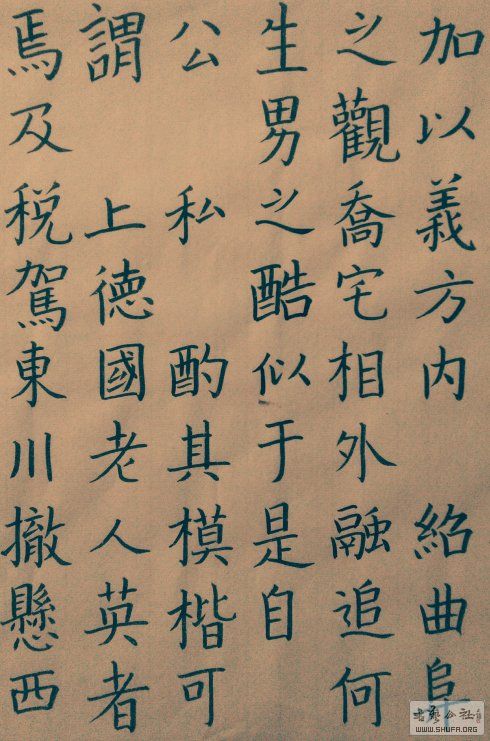 加以義方內 紹曲阜
之觀喬宅相外融追何
生男之酷似于是自
公 私 酌其模楷可
謂 上德國老人英者
焉及税駕東川撤懸西
書藝公社
WWW.SHUFA.ORG